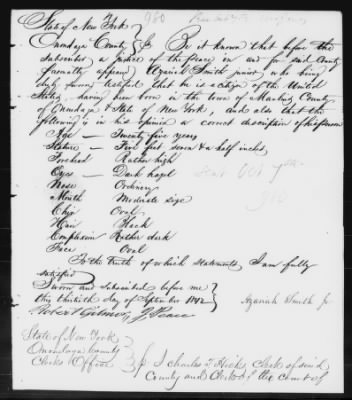 State of New York
960
Onondaga County } ss Be it known that before the
subscriber a justice of the peace in and for said County
personally appeared Azariah Smith junior who being
duly sworn deposeth that he is a citizen of the United
States, having been born in the town of Manlius County
of Onondaga & State of New York, and also that the
following is in his opinion a correct description of his person
Age — Twenty five years
Stature — Five feet seven & a half inches
Forehead Rather high
Eyes — Dark hazel
Nose Ordinary
Mouth Moderate size
Chin Oval
Hair Black
Complexion Rather dark
Face Oval
960
To the truth of which statements I am fully
satisfied
Sworn and subscribed before me
this thirtieth day of September 1842 } Azariah Smith Jr
Robert Gilmor, J Peace
State of New York
Onondaga County
Clerks Office } ss I Charles T Hicks Clerk of said
County and Clerk of the Courts of